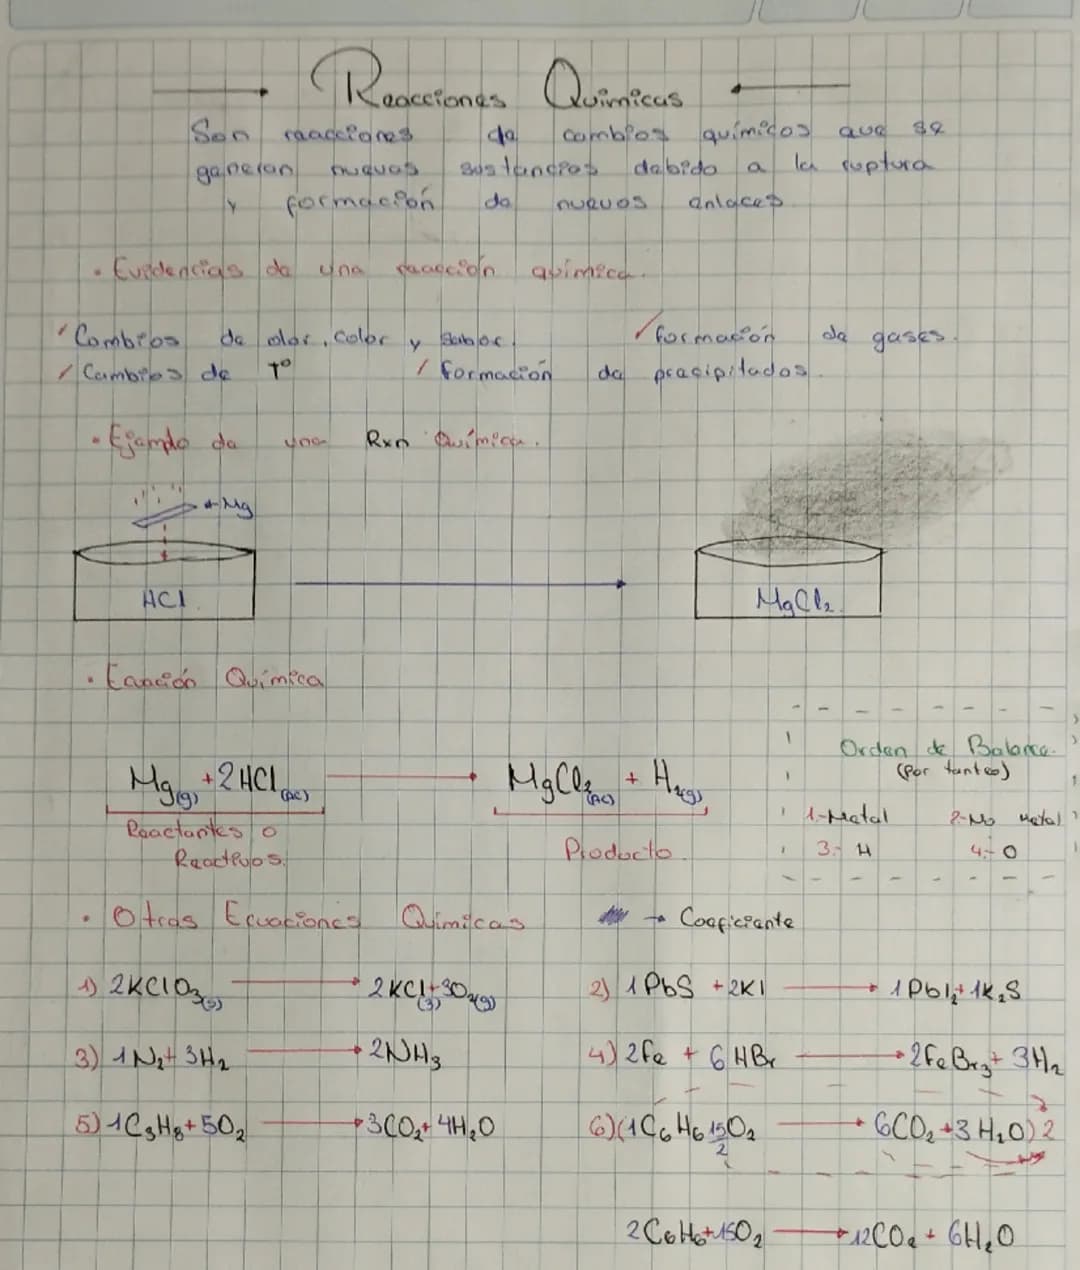 Reacciones Químicas
Son reacciones de cambios químicos que se
generan nuevas sustancias debido a la ruptura
y formación de nuevos enlaces
• Evidencias de una reacción química.
Cambios de olor, color y sabor.
formación de gases.
Cambios de T°
formación de precipitados.
• Ejemplo de una Rxn Química.
Mg
HCl
MgCl₂
• Ecuación Química
Mg(g) + 2HCl(ac) → MgCl₂(ac) + H₂(g)
Reactantes o
Reactivos.
Producto.
Orden de Balance.
(por tanteo)
1.-Metal 2.-No Metal
3.- H 4.- O
• Otras Ecuaciones Químicas
→ Coeficiente
1) 2KClO₃(s) → 2KCl(s) + 3O₂(g)
2) 1PbS + 2KI → 1PbI₂ + 1K₂S
3) 1N₂ + 3H₂ → 2NH₃
4) 2Fe + 6HBr → 2FeBr₃ + 3H₂
5) 1C₃H₈ + 5O₂ → 3CO₂ + 4H₂O
6) (1C₆H₆ 15/2 O₂ → 6CO₂ + 3H₂O) 2
2C₆H₆ + 15O₂ → 12CO₂ + 6H₂O